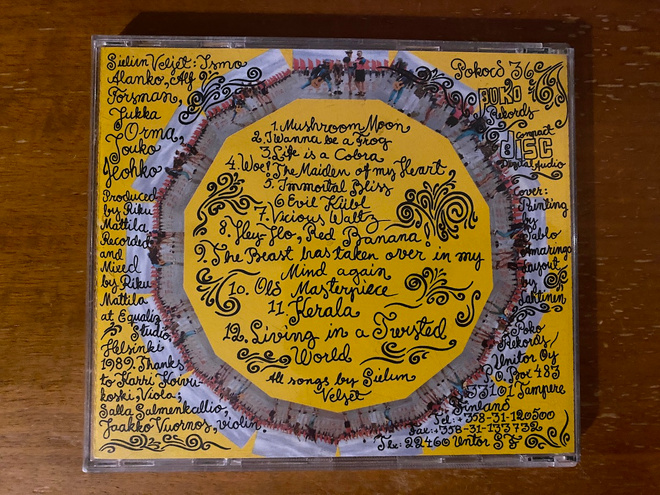 Sielun Veljet: Ismo
Alanko, Alf
Forsman,
Jukka
Orma,
Jouko
Hohko
Produced
by Riku
Mattila
Recorded
and
Mixed
by Riku
Mattila
at Equaliz
Studio,
Helsinki
1989. Thanks
to Harri Koivu-
koski, Viola,
Salla Salmenkallio,
Jaakko Vuornos, violin.
1. Mushroom Moon
2. I wanna be a Frog
3. Life is a Cobra
4. Woe! The Maiden of my Heart
5. Immortal Bliss
6 Evil Hübl
7. Vicious Waltz
8. Hey-Ho, Red Banana!
9. The Beast has taken over in my
Mind again
10. Old Masterpiece
11. Kerala
12. Living in a Twisted
World
All songs by Sielun
Veljet
Pokocd 36
BUKO
Rekords
COMPACT
disc
Digital Audio
Cover:
Painting
by
Pablo
Amaringo
Layout
by
Lahtinen
Poko
Rekords/
P. Unitor Oy
P.O. Box 483
33101 Tampere
Finland
Tel: +358-31-120500
Fax: +358-31-133732
Tlx: 22460 Untor SF